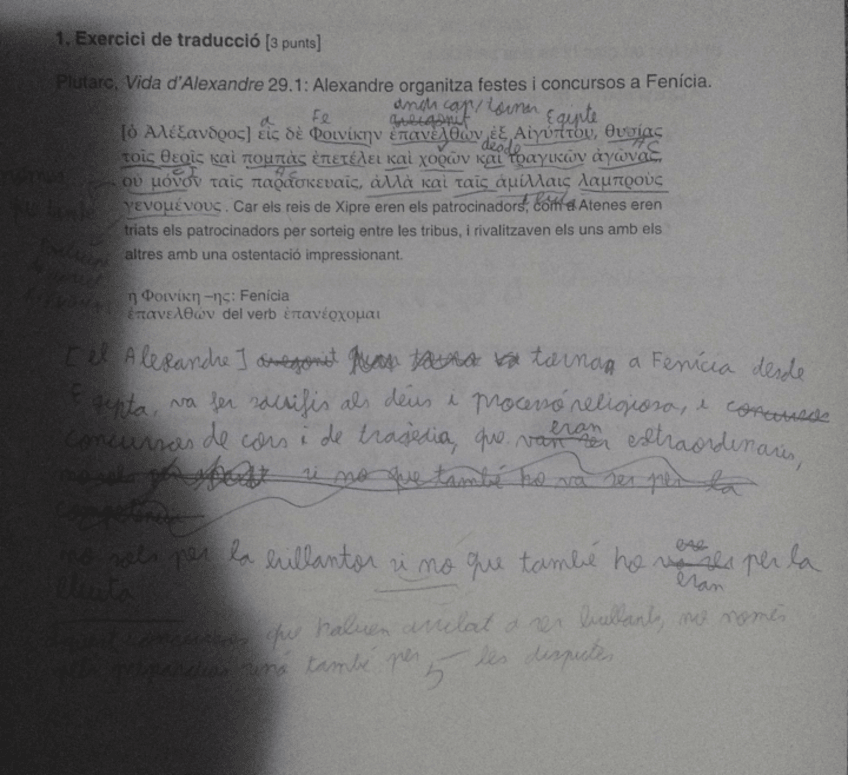 1. Exercici de traducció [3 punts]
Plutarc, Vida d'Alexandre 29.1: Alexandre organitza festes i concursos a Fenícia.
a Fe Egipte
[ὁ Ἀλέξανδρος] εἰς δὲ Φοινίκην ἐπανελθὼν ἐξ Αἰγύπτου, θυσίας
desde
τοῖς θεοῖς καὶ πομπὰς ἐπετέλει καὶ χορῶν καὶ τραγικῶν ἀγῶνας,
οὐ μόνον ταῖς παρασκευαῖς, ἀλλὰ καὶ ταῖς ἁμίλλαις λαμπροὺς
γενομένους. Car els reis de Xipre eren els patrocinadors, com a Atenes eren
triats els patrocinadors per sorteig entre les tribus, i rivalitzaven els uns amb els
altres amb una ostentació impressionant.
η Φοινίκη –ης: Fenícia
ἐπανελθὼν del verb ἐπανέρχομαι
[el Alexandre] tornan a Fenícia desde
Egipta, va fer sacrifis als déus i processó religiosa, i concursos
concursos de cors i de tragèdia, que eran extraordinaris,
si no que també ho va ser per la
no sols per la brillantor si no que també ho eran per la
lluita
que havien arribat a ser brillants, no només
sinó també per les disputes